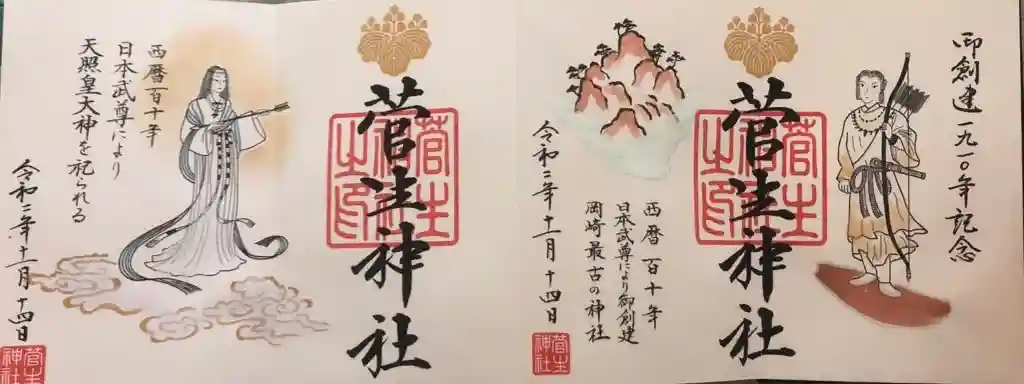 御創建一九一〇年記念
菅生神社
菅生神社之印
西暦 百十年
日本武尊により御創建
岡崎最古の神社
令和二年十一月十四日
菅生神社
菅生神社
菅生神社之印
西暦百十年
日本武尊により
天照皇大神を祀られる
令和二年十一月十四日
菅生神社